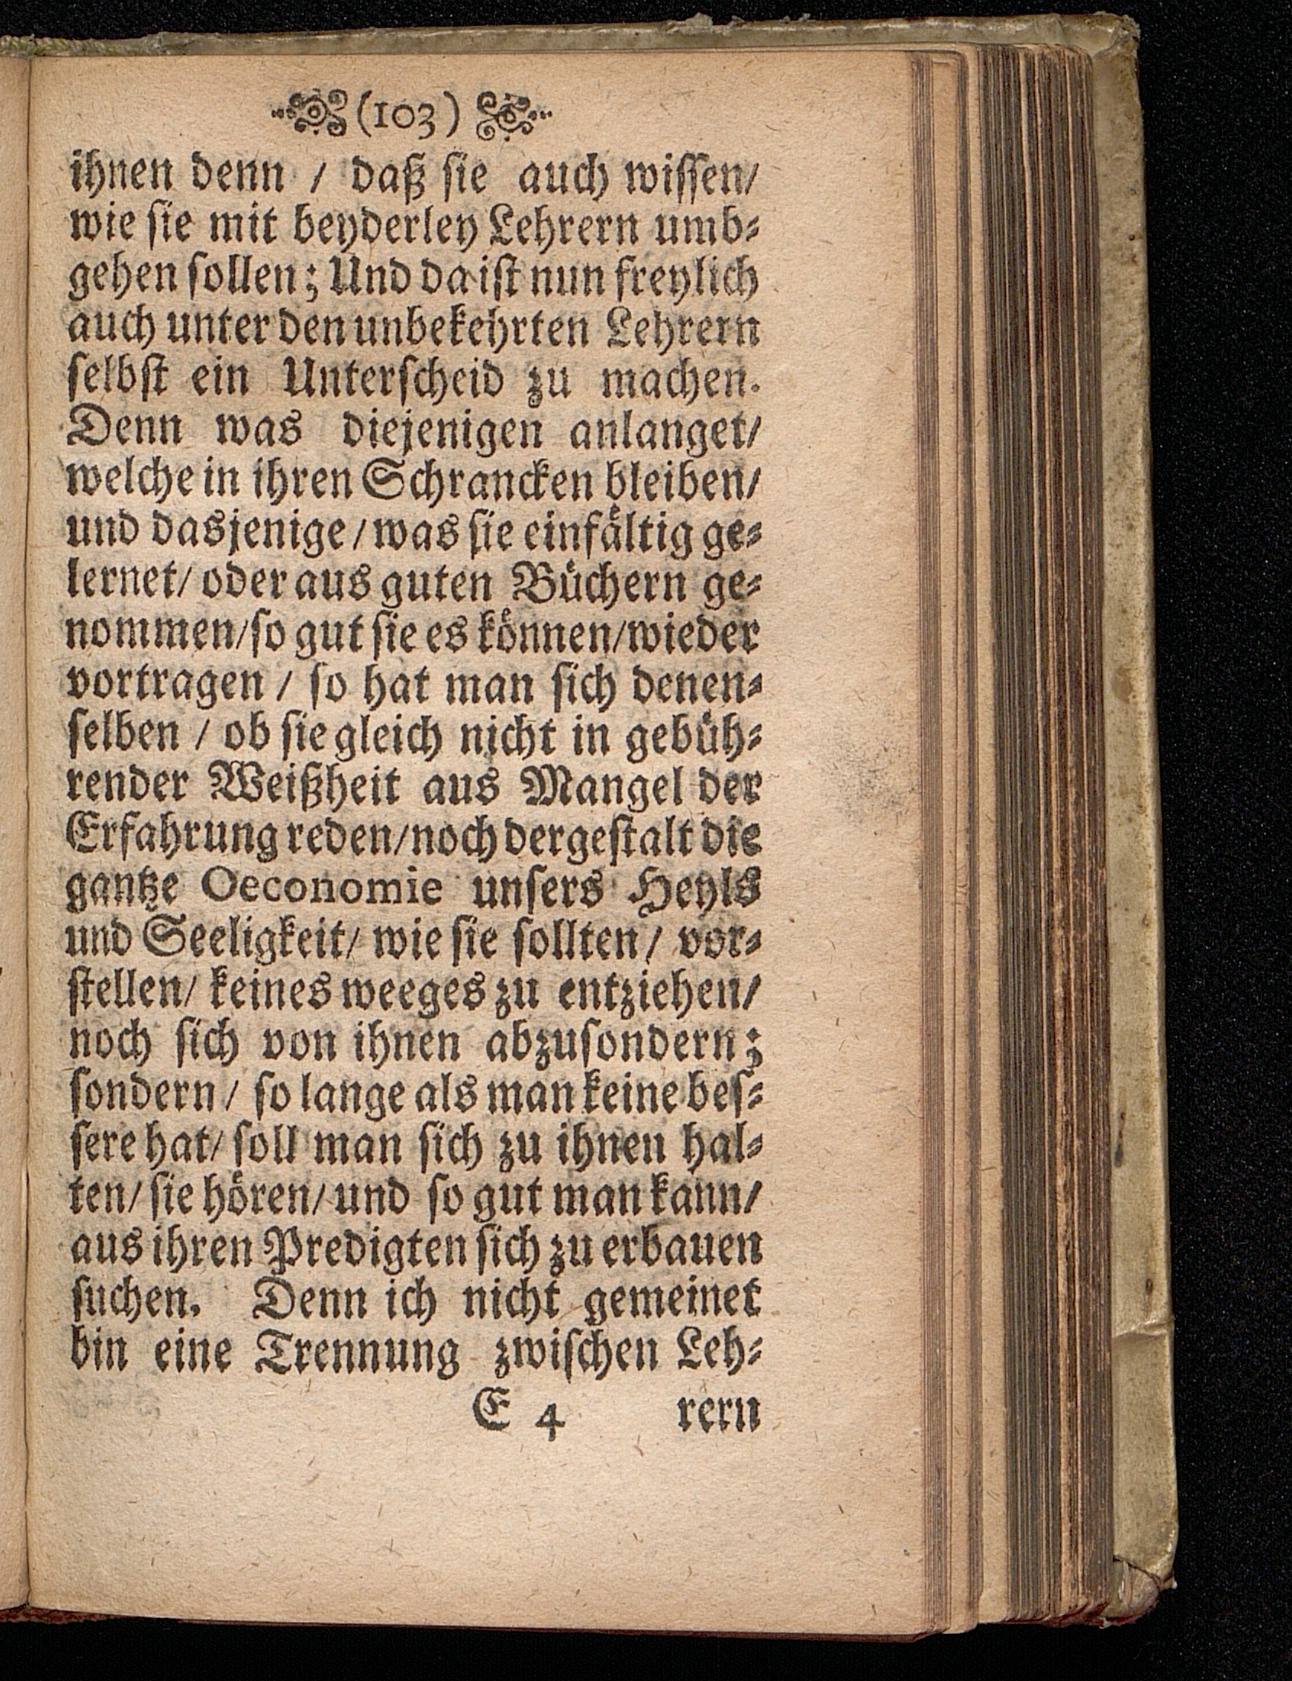 (103)
ihnen denn / daß sie auch wissen/
wie sie mit beyderley Lehrern umb-
gehen sollen; Und da ist nun freylich
auch unter den unbekehrten Lehrern
selbst ein Unterscheid zu machen.
Denn was diejenigen anlanget/
welche in ihren Schrancken bleiben/
und dasjenige/ was sie einfältig ge-
lernet/ oder aus guten Büchern ge-
nommen/ so gut sie es können/ wieder
vortragen / so hat man sich denen-
selben / ob sie gleich nicht in gebüh-
render Weißheit aus Mangel der
Erfahrung reden/ noch dergestalt die
gantze Oeconomie unsers Heyls
und Seeligkeit/ wie sie sollten/ vor-
stellen/ keines weeges zu entziehen/
noch sich von ihnen abzusondern;
sondern/ so lange als man keine bes-
sere hat/ soll man sich zu ihnen hal-
ten/ sie hören/ und so gut man kann/
aus ihren Predigten sich zu erbauen
suchen. Denn ich nicht gemeinet
bin eine Trennung zwischen Leh-
E 4 rern